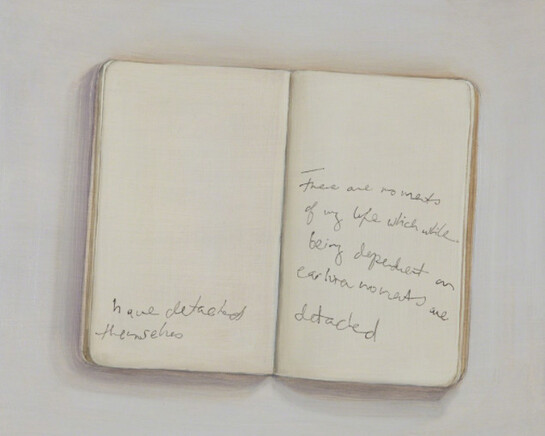 have detached
themselves
There are moments
of my life which while
being dependent on
earlier moments are
detached